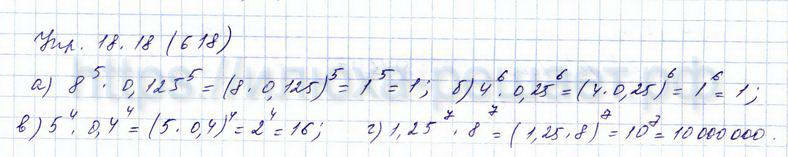 Упр. 18.18 (618)
а) 8⁵ · 0,125⁵ = (8 · 0,125)⁵ = 1⁵ = 1; б) 4⁶ · 0,25⁶ = (4 · 0,25)⁶ = 1⁶ = 1;
в) 5⁴ · 0,4⁴ = (5 · 0,4)⁴ = 2⁴ = 16; г) 1,25⁷ · 8⁷ = (1,25 · 8)⁷ = 10⁷ = 10000000.